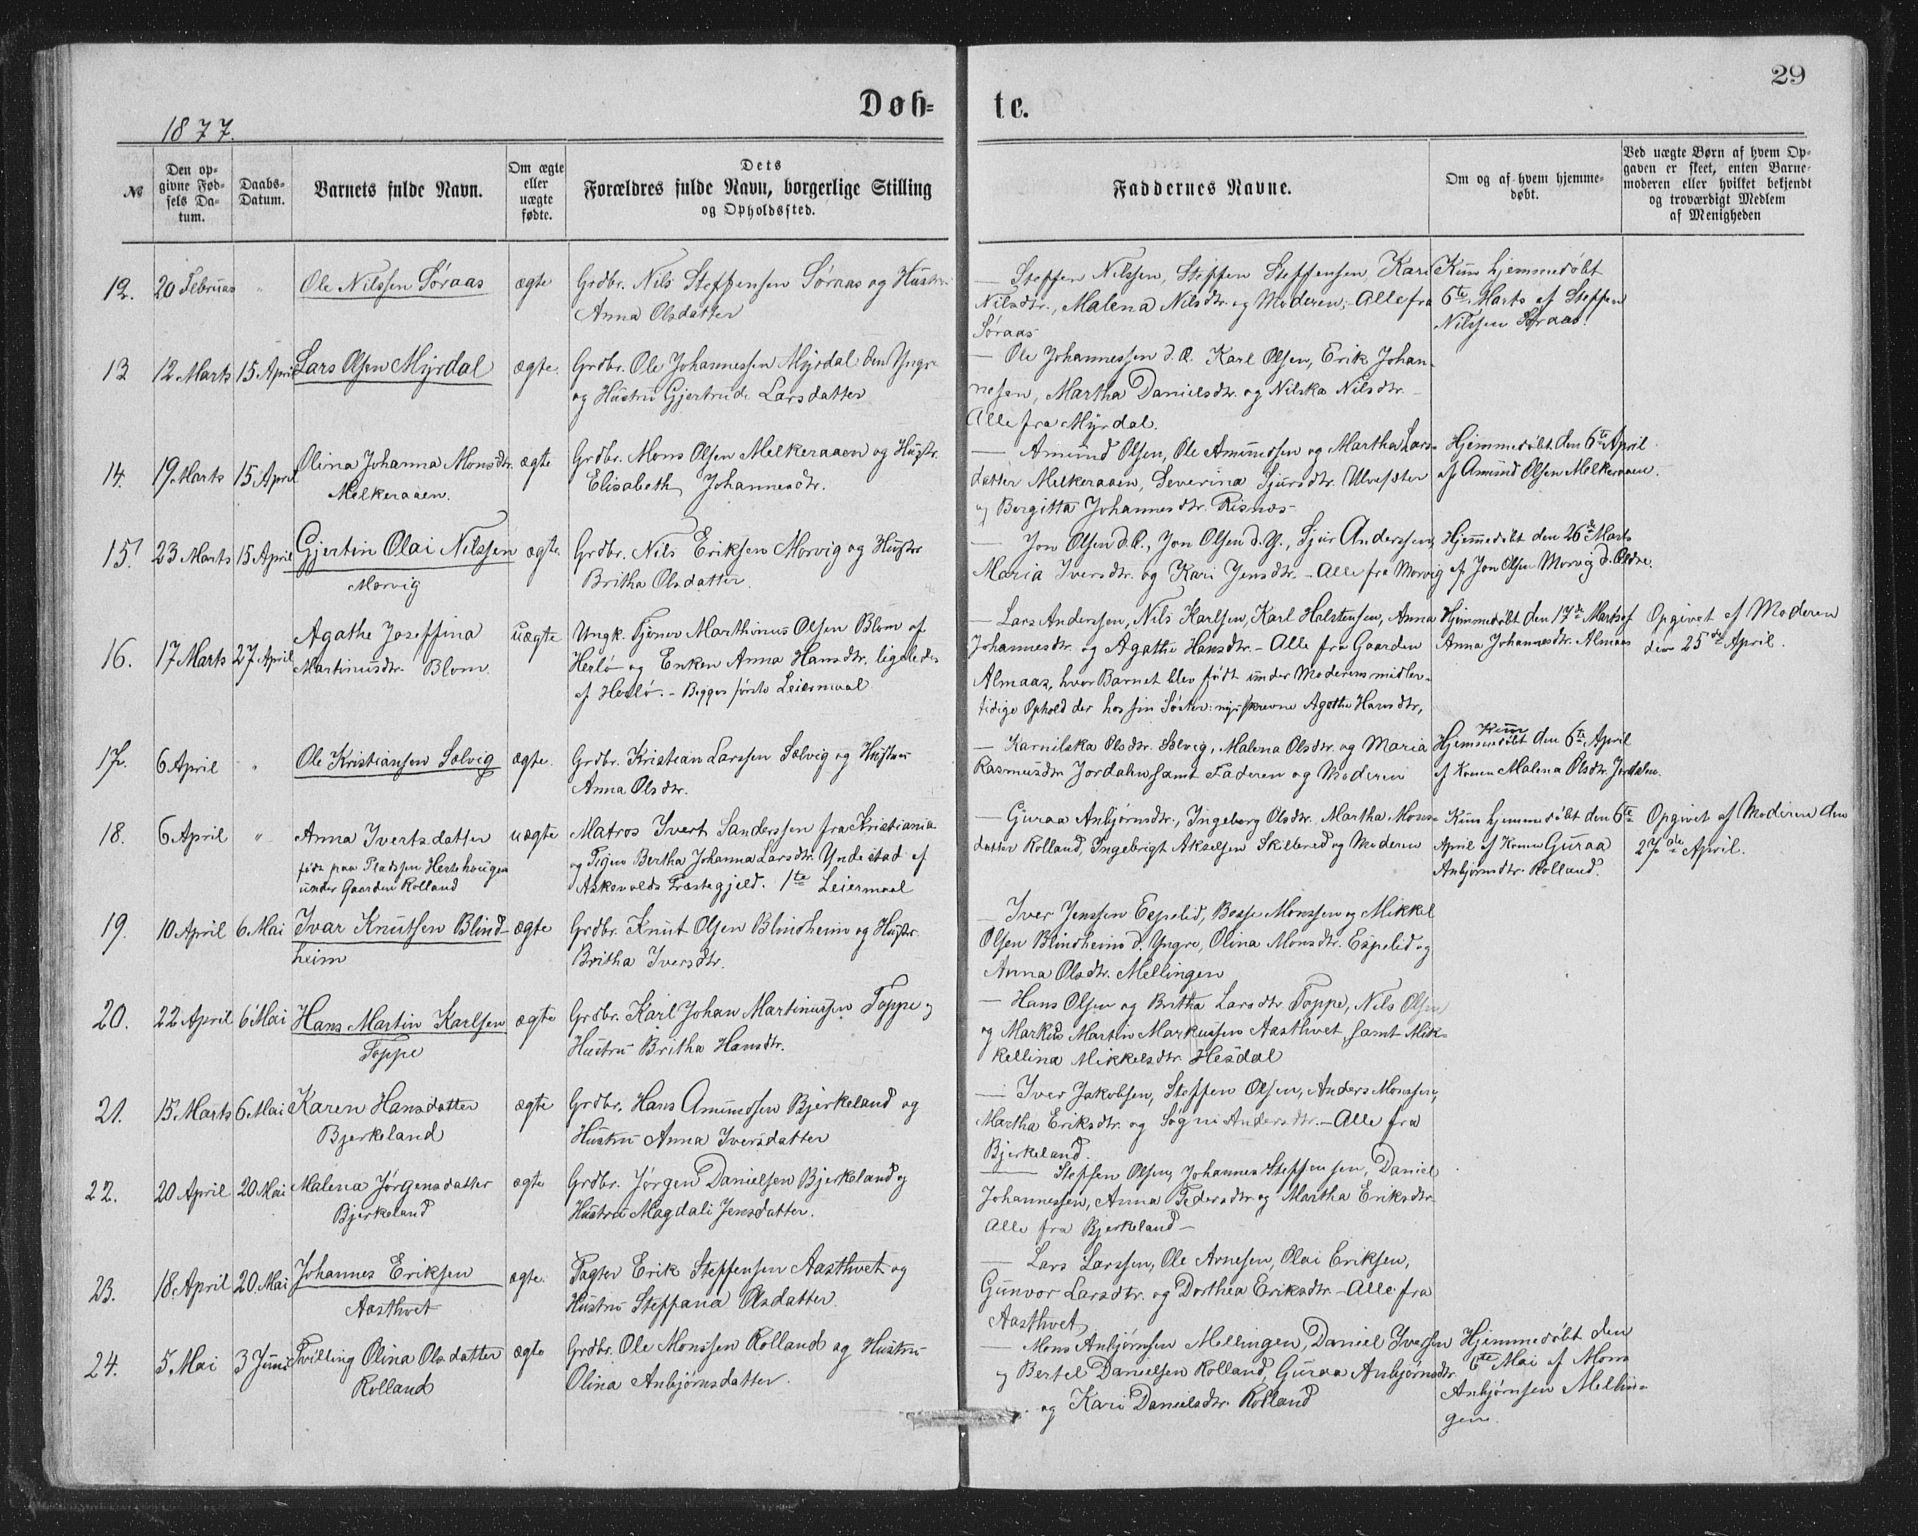 29
Døb-
te.
1877.
№
Den op-
givne Fød-
sels Da-
tum.
Daabs-
Datum.
Barnets fulde Navn.
Om ægte
eller
uægte
fødte.
Dets
Forældres fulde Navn, borgerlige Stilling
og Opholdssted.
Faddernes Navne.
Om og af hvem hjemme-
døbt.
Ved uægte Børn af hvem Op-
gaven er skeet, enten Barne-
moderen eller hvilket bekjendt
og troværdigt Medlem
af Menigheden
12. 20 Februar " Ole Nilssen Søraas ægte
Grdbr. Nils Steffensen Søraas og Hustru
Anna Olsdatter
— Steffen Nilssen, Steffen Steffensen Kari
Nilsdtr., Malena Nilsdtr. og Moderen; Alle fra
Søraas
Kun hjemmedøbt
6te Marts af Steffen
Nilssen Søraas.
13 12 Marts 15 April Lars Olsen Myrdal ægte.
Grdbr. Ole Johannessen Myrdal den Yngre
og Hustru Gjertrude Larsdatter
— Ole Johannessen d.Æ. Karl Olsen, Erik Johan-
nesen, Martha Danielsdtr. og Nilska Nilsdtr. –
Alle fra Myrdal.
14. 19. Marts 15 April Olina Johanna Monsdtr.
Melkeraaen.
ægte
Grdbr. Mons Olsen Melkeraaen og Hustr.
Elisabeth Johannesdtr.
— Amund Olsen, Ole Amundsen og Martha Lars-
datter Melkeraaen, Severina Sjursdtr. Ulvesæter
og Bergitta Johannesdtr. Risnes
Hjemmedøbt den 6te April
af Amund Olsen Melkeraaen.
15. 23 Marts 15 April Gjertin Olai Nilssen
Morvig
ægte.
Grdbr. Nils Eriksen Morvig og Hustr
Britha Olsdatter.
— Jon Olsen d.Æ., Jon Olsen d.Y., Sjur Anderssen,
Maria Iversdtr. og Kari Jensdtr. – Alle fra Morvig
Hjemmedøbt den 26de Marts
af Jon Olsen Morvig d. Ældre.
16. 17 Marts 27 April Agathe Joseffina
Martinusdtr. Blom.
uægte
Ungk. Tjener Marthinus Olsen Blom af
Herlø og Enken Anna Hansdtr. ligeledes
af Herlø. – Begges første Leiermaal
— Lars Anderssen, Nils Karlsen, Karl Halstensen, Anna
Johannesdtr. og Agathe Hansdtr. – Alle fra Gaarden
Almaas, hvor Barnet blev født under Moderens midler-
tidige Ophold der hos sin Søster: nysskrevne Agathe Hansdtr,
Hjemmedøbt den 17de Marts af
Anna Johannesdtr. Almaas
Opgivet af Moderen
den 25de April.
17. 6 April " Ole Kristiansen Solvig ægte.
Grdbr. Kristian Larssen Solvig og Hustru
Anna Olsdtr.
— Karnilska Olsdtr. Solvig, Malena Olsdtr og Maria
Rasmusdtr Jordahn samt Faderen og Moderen
Kun
Hjemmedøbt den 6te April
af Konen Malena Olsdtr. Jordalen.
18. 6 April " Anna Ivertsdatter
født paa Pladsen Hestehougen
under Gaarden Rolland
uægte
Matros Ivert Sanderssen fra Kristiania
og Pigen Bertha Johanna Larsdtr. Yndestad af
Askevolds Præstegjeld. 1te Leiermaal
— Guraa Anbjørnsdtr., Ingeborg Olsdtr. Martha Mons-
datter Rolland, Ingebrigt Akselsen Skellered og Moderen
Kun hjemmedøbt den 6te
April af Konen Guraa
Anbjørnsdtr. Rolland.
Opgivet af Moderen den
27de April.
19. 10 April 6 Mai Ivar Knutsen Blind-
heim
ægte
Grdbr. Knut Olsen Blindheim og Hustr.
Britha Iversdtr.
— Iver Jenssen Espelid, Bosse Monssen og Mikkel
Olsen Blindheim d. Yngre, Olina Monsdtr. Espelid og
Anna Olsdtr. Mellingen
20. 22 April 6 Mai Hans Martin Karlsen
Toppe
ægte
Grdbr. Karl Johan Martinussen Toppe og
Hustru Britha Hansdtr.
— Hans Olsen og Britha Larsdtr. Toppe, Nils Olsen
og Markus Martin Markussen Aasthvet samt Mik-
kellina Mikkelsdtr. Hesdal
21. 15 Marts 6 Mai Karen Hansdatter
Bjerkeland
ægte
Grdbr. Hans Amundsen Bjerkeland og
Hustru Anna Iversdatter
— Iver Jakobsen, Steffen Olsen, Anders Monssen,
Martha Eriksdtr. og Søgni Andersdtr. – Alle fra
Bjerkeland.
22. 20 April 20 Mai Malena Jørgensdatter
Bjerkeland
ægte
Grdbr. Jørgen Danielsen Bjerkeland og
Hustru Magdali Jensdatter.
— Steffen Olsen, Johannes Steffensen, Daniel
Johannessen, Anna Pedersdtr og Martha Eriksdtr.
Alle fra Bjerkeland –
23. 18 April 20 Mai Johannes Eriksen
Aasthvet
ægte.
Pagter Erik Steffensen Aasthvet og
Hustru Steffana Olsdatter
— Lars Larssen, Ole Arnesen, Olai Eriksen,
Gunvor Larsdtr. og Dorthea Eriksdtr – Alle fra
Aasthvet
24. 5 Mai 3 Juni Tvilling Olina Olsdatter
Rolland
ægte
Grdbr. Ole Monssen Rolland og Hustru
Olina Anbjørnsdatter.
— Mons Anbjørnsen Mellingen, Daniel Iverssen
og Bertel Danielsen Rolland, Guraa Anbjørnsdtr.
og Kari Danielsdtr. Rolland
Hjemmedøbt den
6te Mai af Mons
Anbjørnsen Mellin-
gen.